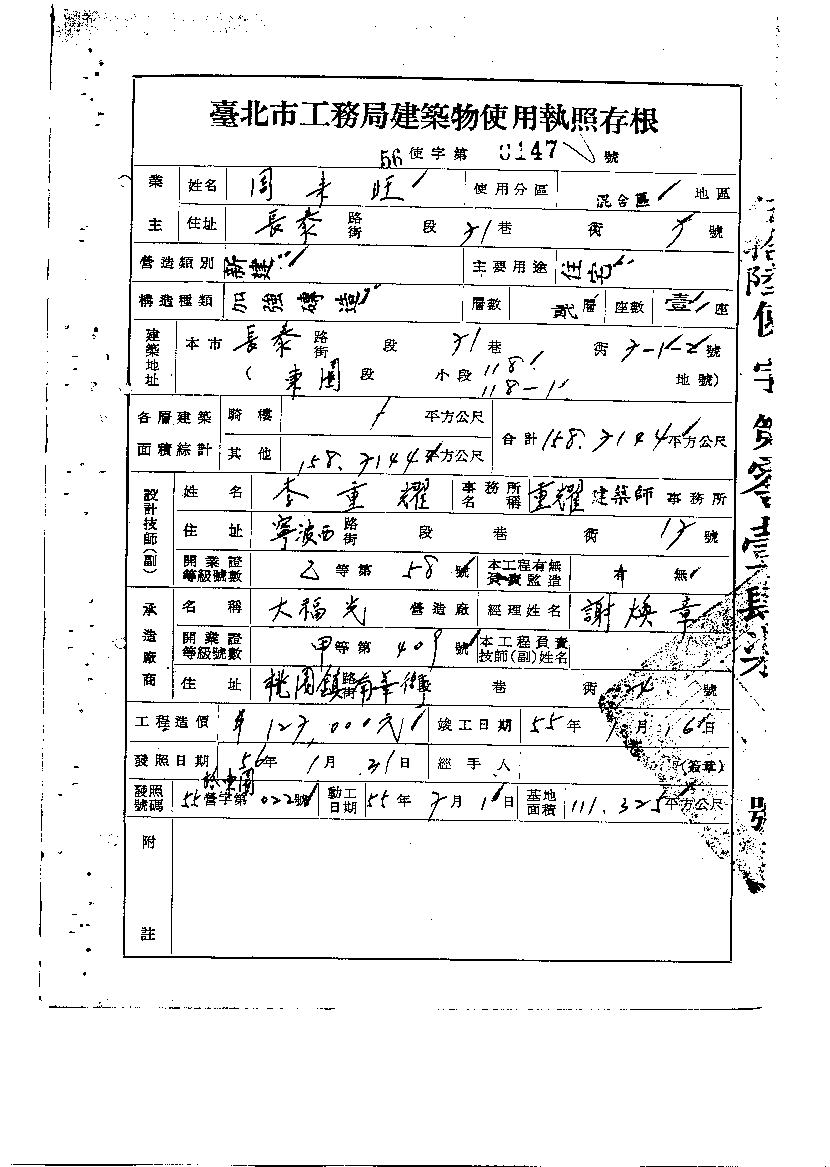 臺北市工務局建築物使用執照存根
56 使字第 0147 號
業主 姓名 周來旺 使用分區 混合區 地區
住址 長泰 路街 段 巷 衖 號
營造類別 新建 主要用途 住宅
構造種類 加強磚造 層數 貳層 座數 壹座
建築地址 本市 長泰 路街 段 巷 衖 號
( 東園 段 小段 118 118-1 地號)
各層建築面積綜計 騎樓 平方公尺
其他 平方公尺 合計 平方公尺
設計技師(副) 姓名 李重耀 事務所名稱 重耀建築師 事務所
住址 寧波西 路街 段 巷 衖 號
開業證等級號數 乙等第 58 號 本工程有無負責監造 有 無
承造廠商 名稱 大福光 營造廠 經理姓名 謝煥章
開業證等級號數 甲等第 409 號 本工程負責技師(副)姓名
住址 桃園鎮 路街 南華街 巷 衖 號
工程造價 000元 竣工日期 55年 月 日
發照日期 56年 1月 日 經手人 (簽章)
發照號碼 55營字第 022 號 動工日期 55年 月 1日 基地面積 111.325 平方公尺
附註